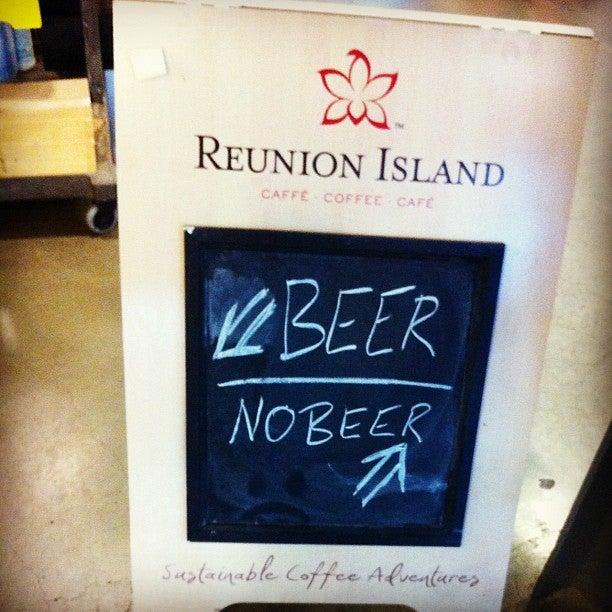 REUNION ISLAND
CAFFÉ · COFFEE · CAFÉ
BEER
NO BEER
Sustainable Coffee Adventures